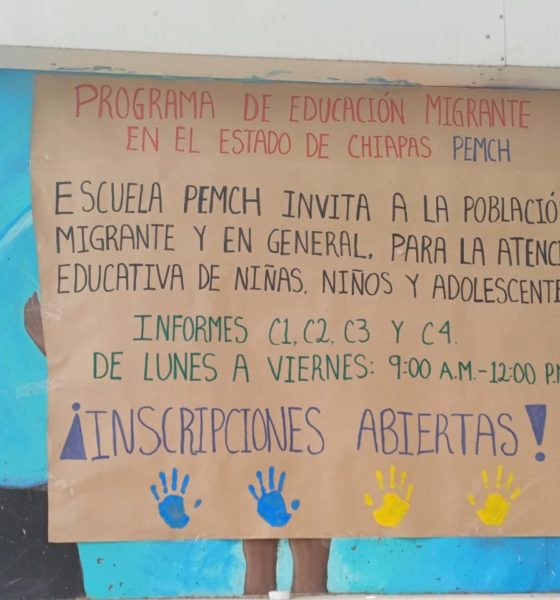 PROGRAMA DE EDUCACIÓN MIGRANTE
EN EL ESTADO DE CHIAPAS PEMCH
ESCUELA PEMCH INVITA A LA POBLACIÓ
MIGRANTE Y EN GENERAL, PARA LA ATENCI
EDUCATIVA DE NIÑAS, NIÑOS Y ADOLESCENTE
INFORMES C1, C2, C3 Y C4.
DE LUNES A VIERNES: 9:00 A.M.-12:00 P.M
¡INSCRIPCIONES ABIERTAS!